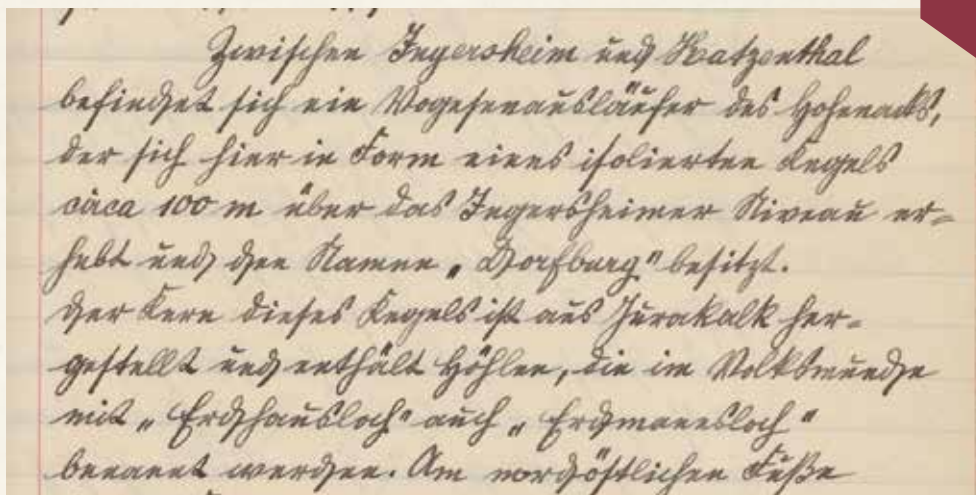 Zwischen Ingersheim und Katzenthal
befindet sich ein Vogesenausläufer des Hohenacks,
der sich hier in Form eines isolierten Kegels
circa 100 m über das Ingersheimer Niveau er=
hebt und den Namen „Dorfburg" besitzt.
Der Kern dieses Kegels ist aus Jurakalk her=
gestellt und enthält Höhlen, die im Volksmunde
mit „Erdhausloch" auch „Erdmannsloch"
benannt werden. Am nordöstlichen Fuße